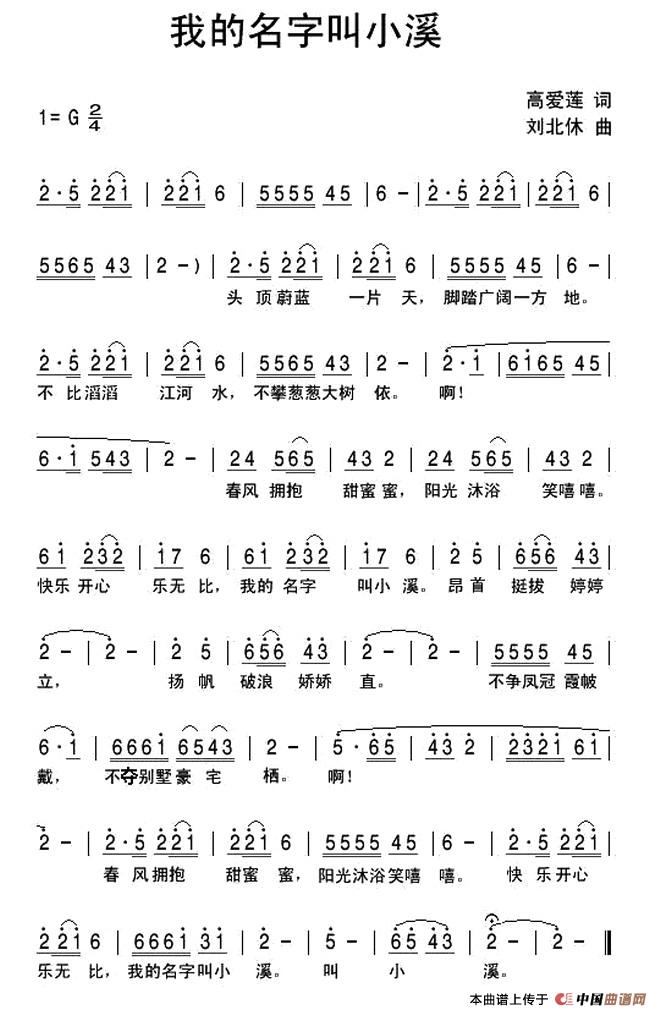 我的名字叫小溪
高爱莲 词
1=G 2/4
刘北休 曲
2·5 221 | 221 6 | 5555 45 | 6 - | 2·5 221 | 221 6 |
5565 43 | 2 - ) | 2·5 221 | 221 6 | 5555 45 | 6 - |
头 顶 蔚蓝 一片 天, 脚踏广阔一方 地。
2·5 221 | 221 6 | 5565 43 | 2 - | 2·1 | 6165 45 |
不 比 滔滔 江河 水, 不攀葱葱大树 依。 啊!
6·1 543 | 2 - | 24 565 | 43 2 | 24 565 | 43 2 |
春风 拥抱 甜蜜 蜜, 阳光 沐浴 笑嘻 嘻。
61 232 | 17 6 | 61 232 | 17 6 | 2 5 | 656 43 |
快乐 开心 乐无 比, 我的 名字 叫小 溪。 昂 首 挺拔 婷婷
2 - | 2 - | 2 5 | 656 43 | 2 - | 2 - | 5555 45 |
立, 扬 帆 破浪 娇娇 直。 不争凤冠 霞帔
6·1 | 6661 6543 | 2 - | 5·65 | 43 2 | 2321 61 |
戴, 不夺别墅 豪 宅 栖。 啊!
2 - | 2·5 221 | 221 6 | 5555 45 | 6 - | 2·5 221 |
春 风 拥抱 甜蜜 蜜, 阳光沐浴 笑嘻 嘻。 快 乐 开心
221 6 | 6661 31 | 2 - | 5 - | 65 43 | 2 - | 2 - ‖
乐无 比, 我的名字 叫小 溪。 叫 小 溪。
本曲谱上传于 中国曲谱网